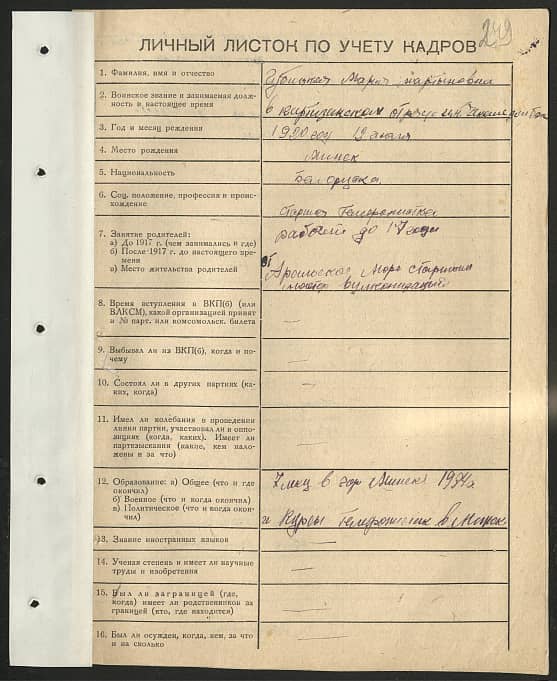 249
ЛИЧНЫЙ ЛИСТОК ПО УЧЕТУ КАДРОВ
1. Фамилия, имя и отчество
Мария Мартиновна
2. Воинское звание и занимаемая долж-
ность в настоящее время
в партизанском отряде
3. Год и месяц рождения
1920 год 12 июля
4. Место рождения
Минск
5. Национальность
Белоруска.
6. Соц. положение, профессия и проис-
хождение
старшая Телефонистка
7. Занятие родителей:
а) До 1917 г. (чем занимались и где)
б) После 1917 г. до настоящего вре-
мени
в) Место жительства родителей
рабочий до 17 года
Аральское море старшим
мастер вулканизации
8. Время вступления в ВКП(б) (или
ВЛКСМ), какой организацией принят
и № парт. или комсомольск. билета
—
9. Выбывал ли из ВКП(б), когда и по-
чему
—
10. Состоял ли в других партиях (ка-
ких, когда)
—
11. Имел ли колебания в проведении
линии партии, участвовал ли в оппо-
зициях (когда, каких). Имеет ли
партвзыскания (какие, кем нало-
жены и за что)
—
12. Образование: а) Общее (что и где
окончил)
б) Военное (что и когда окончил)
в) Политическое (что и когда окон-
чил)
7 клас в гор Минске 1934г
и Курсы Телефонисток в Минске
13. Знание иностранных языков
—
14. Ученая степень и имеет ли научные
труды и изобретения
—
15. Был ли заграницей (где,
когда) имеет ли родственников за
границей (кто, где находится)
—
16. Был ли осужден, когда, кем, за что
и на сколько
—